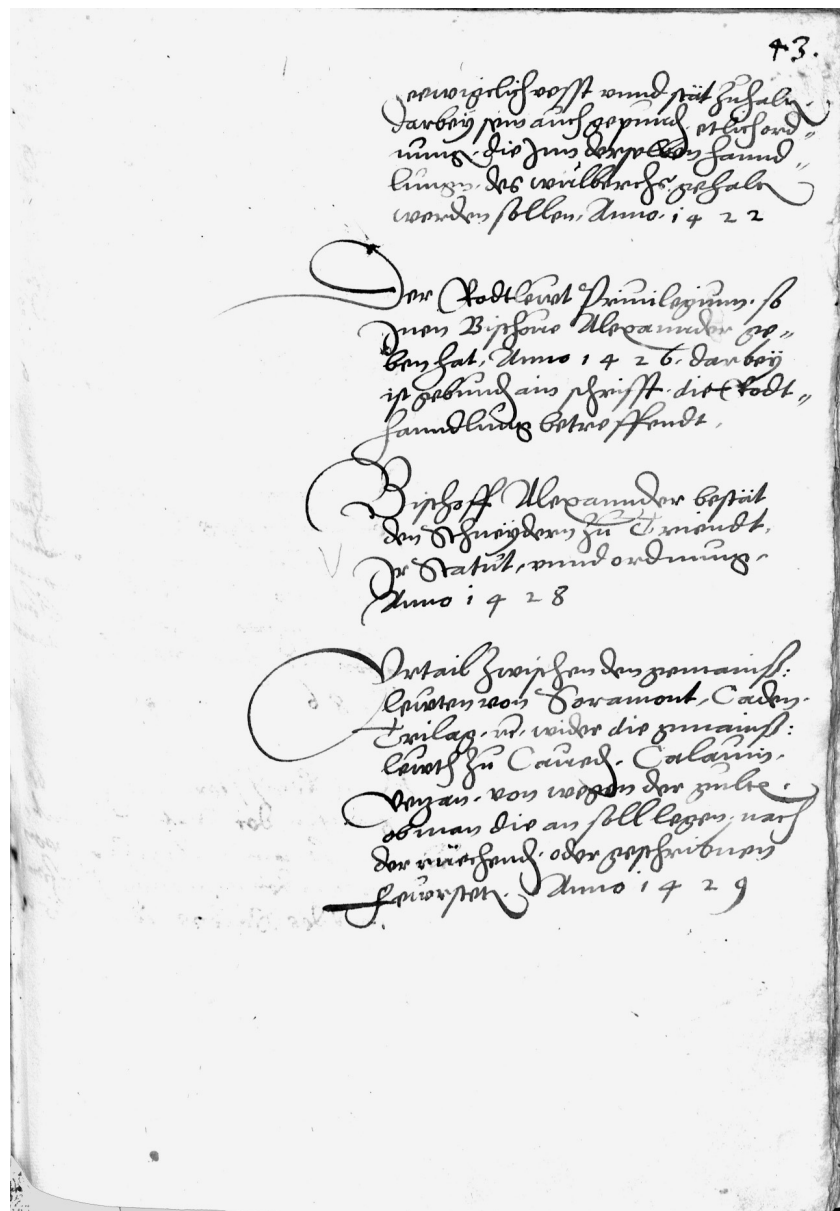 43.
eewigclich vesst vnnd stät zuhaltn.
darbey sein auch gepundn etlich ord„
nung. die Inn derselben hannd„
lungn. des wülberchs. gehaltn
werden sollen. Anno. 1422
Der Rodtlewt Priuilegium. so
Inen Bischoue Alexannder ge„
ben hat. Anno 1426. darbey
ist gebundn ain schrifft. die Rodt„
hanndlung betreffendt.
Bischoff Alexannder bestät
den Schneydern zu Triendt.
Ir Statut, vnnd ordnung.
Anno 1428
Vrtail zwischen den gemainß:
lewten von Soramont, Caden.
Trilag. rc. wider die gmainß:
lewth zu Cauedn. Calauin.
Vezan. von wegen der gulte.
ob man die an soll legen, nach
der rüechendn. oder geschribnen
Fewrstetn. Anno 1429